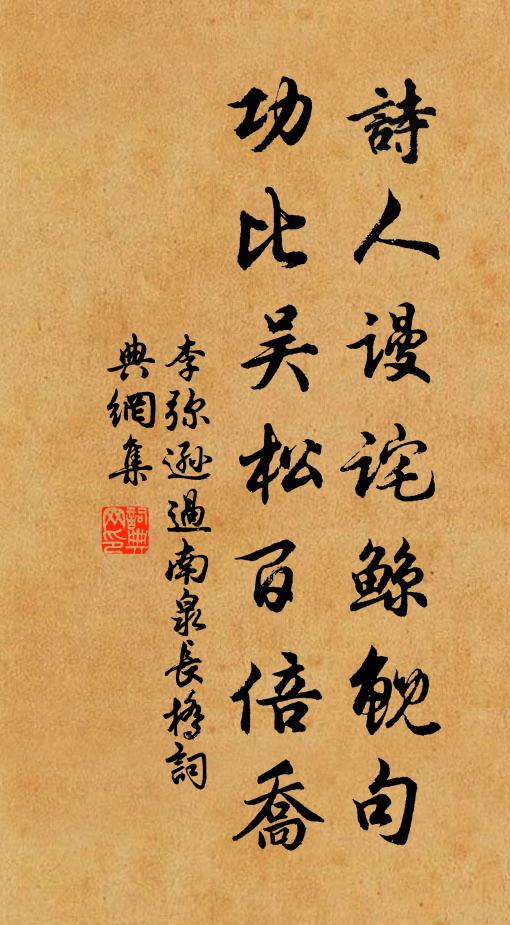 詩人謾詫鯨鯢句
功比吴松百倍喬
李弥遜過南泉長橋詞
典網集
詞典網印